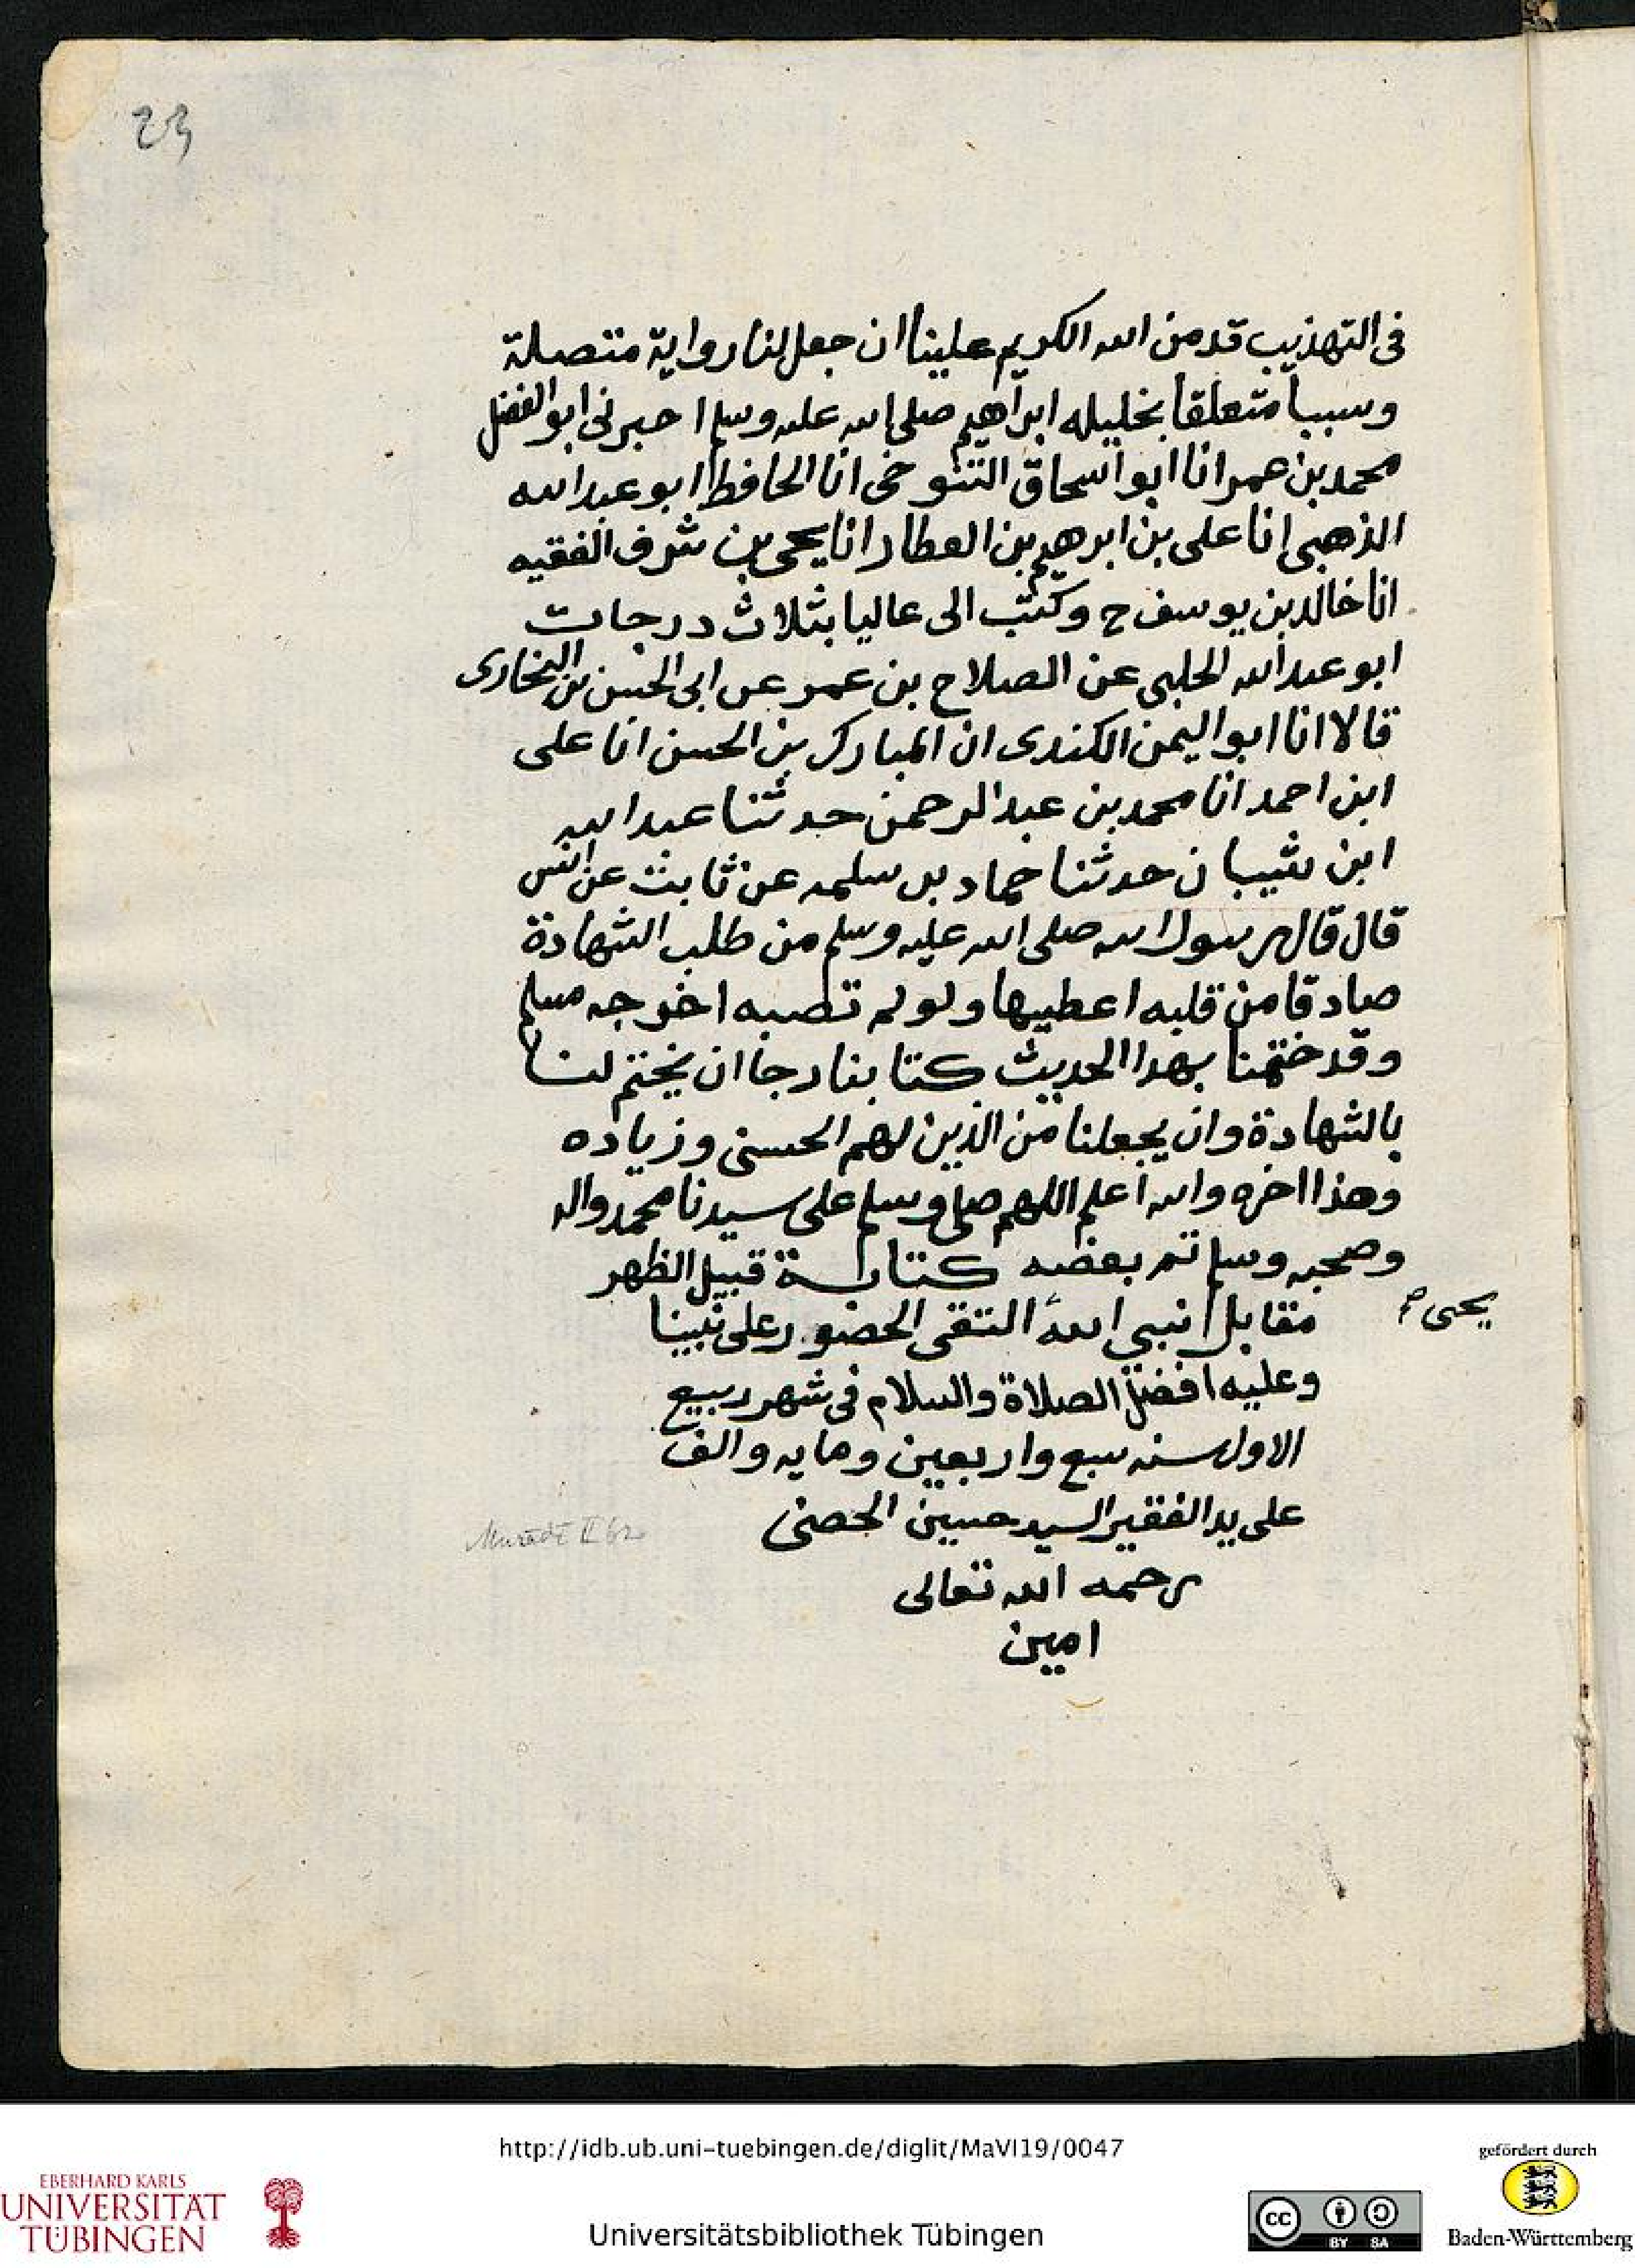 23
فى التهذيب قد من الله الكريم علينا ان جعل لنا رواية متصلة
وسببا متعلقا بخليله ابراهيم صلى الله عليه وسلم اخبرنى ابو الفضل
محمد بن عمر انا ابو اسحاق التنوخى انا الحافظ ابو عبد الله
الذهبى انا على بن ابرهيم بن العطار انا يحيى بن شرف الفقيه
انا خالد بن يوسف ح وكتب الى عاليا بثلاث درجات
ابو عبد الله الحلبى عن الصلاح بن عمر عن ابى الحسن بن البخارى
قالا انا ابو اليمن الكندى ان المبارك بن الحسن انا على
ابن احمد انا محمد بن عبد الرحمن حدثنا عبد الله
ابن شيبان حدثنا حماد بن سلمه عن ثابت عن انس
قال قال رسول الله صلى الله عليه وسلم من طلب الشهادة
صادقا من قلبه اعطيها ولو لم تصبه اخرجه مسلم
وقد ختمنا بهذا الحديث كتابنا رجا ان يختم لنا
بالشهادة وان يجعلنا من الذين لهم الحسنى وزياده
وهذا اخره والله اعلم اللهم صلى وسلم على سيدنا محمد واله
وصحبه وسلم تم بعضه كتابة قبيل الظهر
مقابل نبي الله التقى الحضور على نبينا
يحيى
وعليه افضل الصلاة والسلام فى شهر ربيع
الاول سنه سبع واربعين ومايه والف
على يد الفقير السيد حسين الحصنى
Muradi II 62
رحمه الله تعالى
امين
http://idb.ub.uni-tuebingen.de/diglit/MaVI19/0047
Universitätsbibliothek Tübingen
EBERHARD KARLS
UNIVERSITÄT
TÜBINGEN
cc BY SA
gefördert durch
Baden-Württemberg